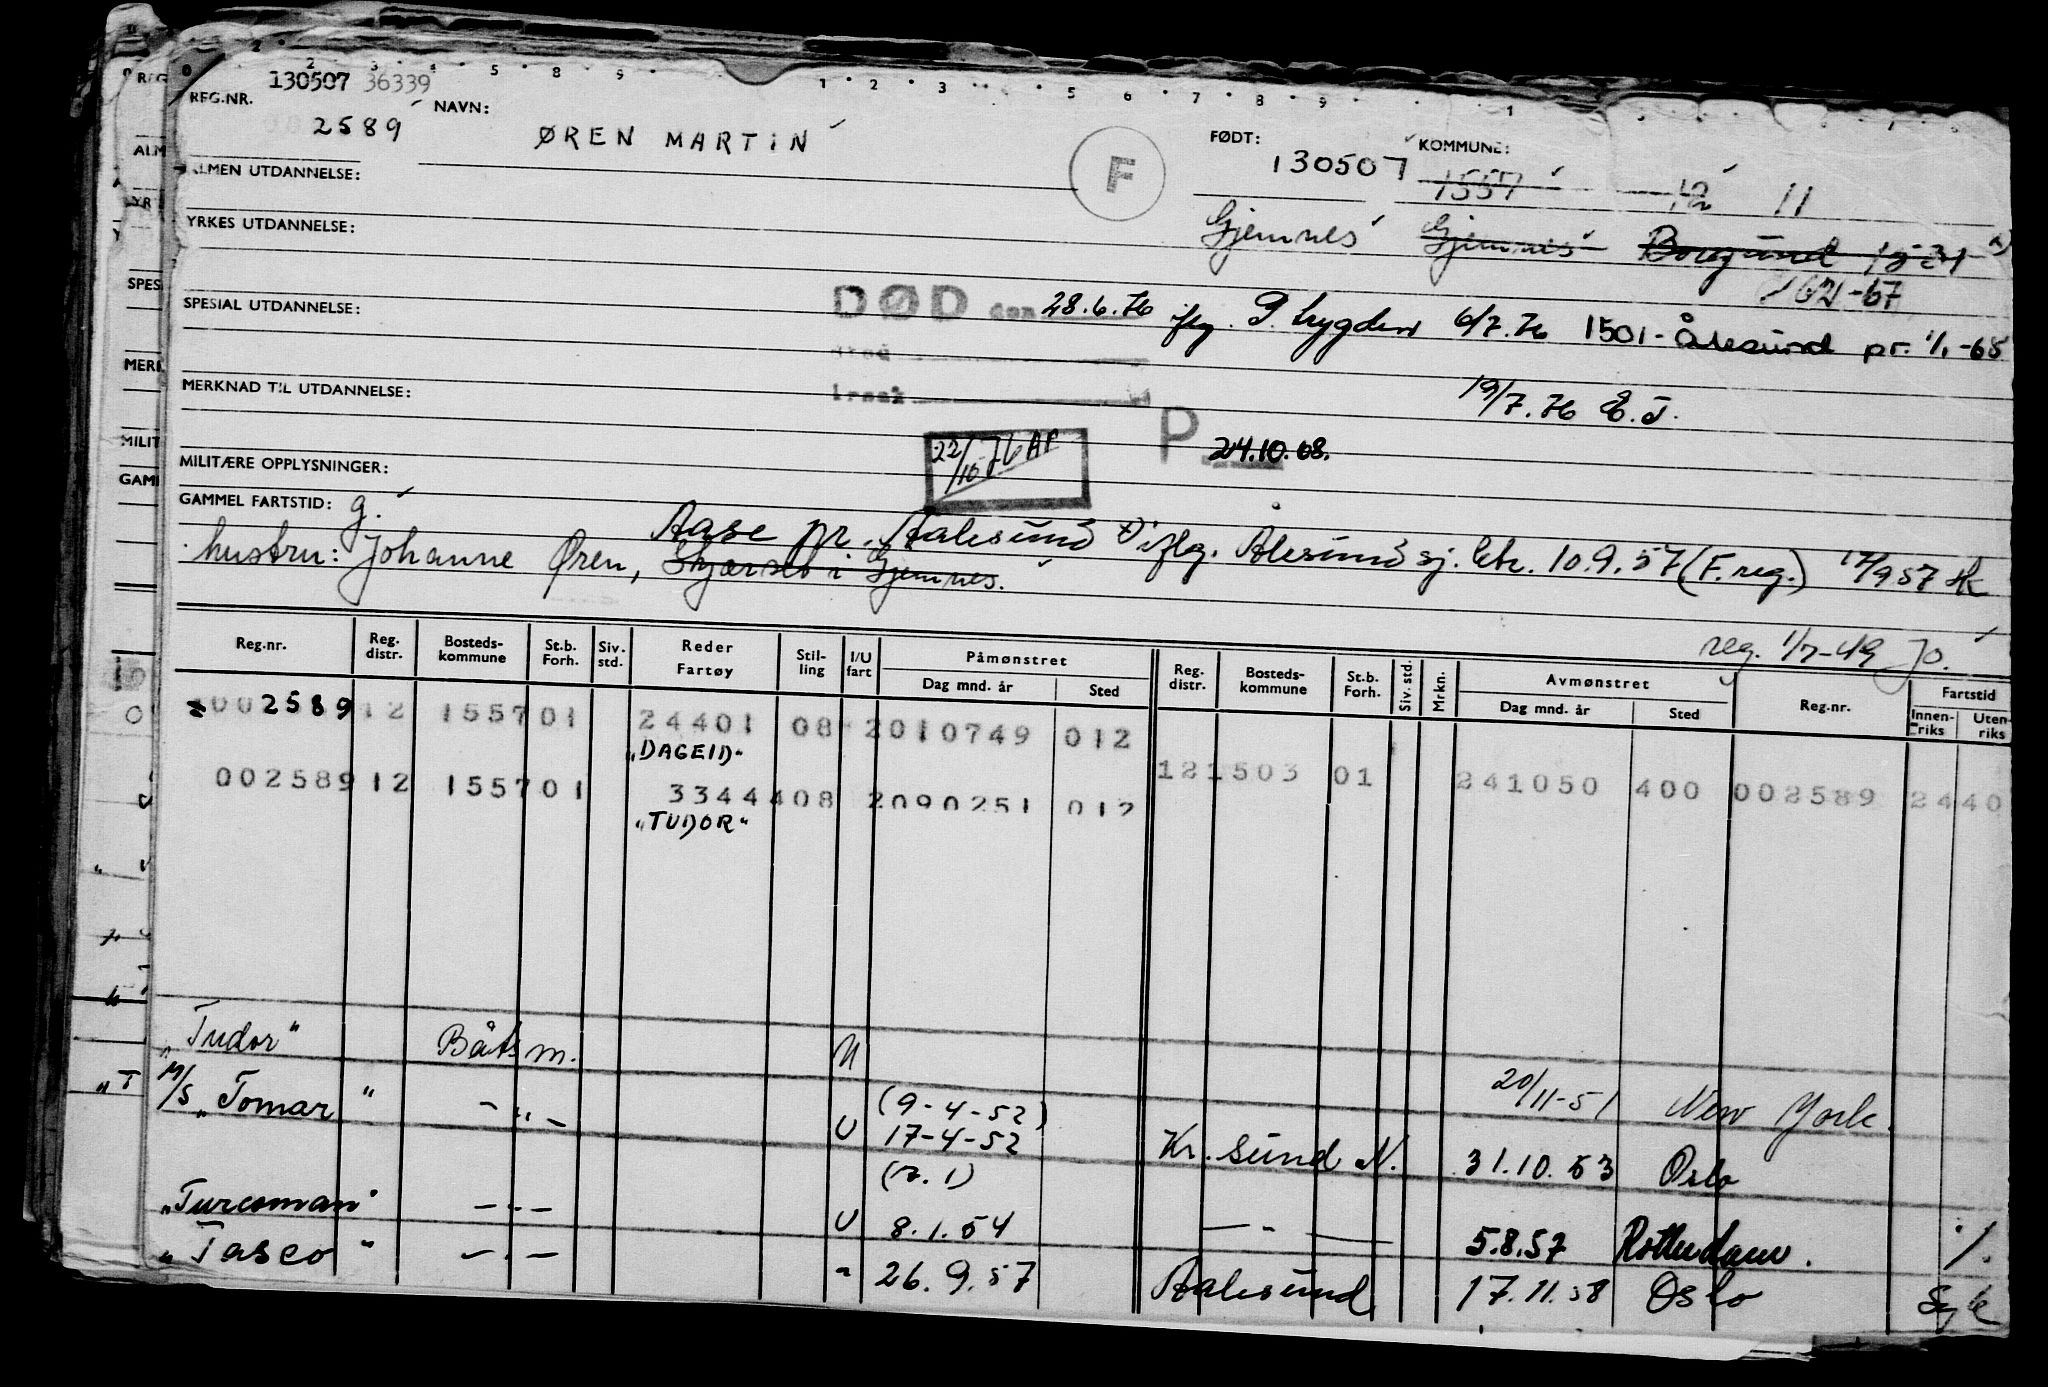 130507 36339
REG.NR. 2589 NAVN: ØREN MARTIN F FØDT: 130507 KOMMUNE: 1557 12 11
ALMEN UTDANNELSE:
Gjemnes Gjemnes Borgund 1531
YRKES UTDANNELSE:
SPESIAL UTDANNELSE: DØD den 28.6.76 iflg. P. trygden 6/7.76 1501-Ålesund pr. 1/1-68
sted
19/7.76 E.T.
MERKNAD TIL UTDANNELSE: årsak
22/10-76 AP P 24.10.68.
MILITÆRE OPPLYSNINGER:
GAMMEL FARTSTID: g.
Aase pr. Aalesund iflg. Alesund sj. ktr. 10.9.57 (F.reg.) 17/9 57
hustru: Johanne Øren, i Gjemnes.
reg. 1/7-49 Jo.
Reg.nr. Reg. distr. Bosteds-kommune St.b. Forh. Siv. std. Reder Fartøy Stil-ling I/U fart Påmønstret Dag mnd. år Sted Reg. distr. Bosteds-kommune St.b. Forh. Siv. std. Mrkn. Avmønstret Dag mnd. år Sted Reg.nr. Fartstid Innen-riks Uten-riks
002589 12 1557 01 24401 08 2010749 012
"DAGEID"
121503 01 241050 400 002589 2440
002589 12 1557 01 33444 08 2090251 012
"TUDOR"
"Tudor" Båtsm. U 20/11-51 New York.
M/S "Tomar" -"- U (9-4-52)
17-4-52 Kr. sund N. 31.10.53 Oslo
(r. 1)
"Turcoman" -"- U 8.1.54 -"- 5.8.57 Rotterdam.
"Tasco" -"- " 26.9.57 Aalesund 17.11.58 Oslo Syk